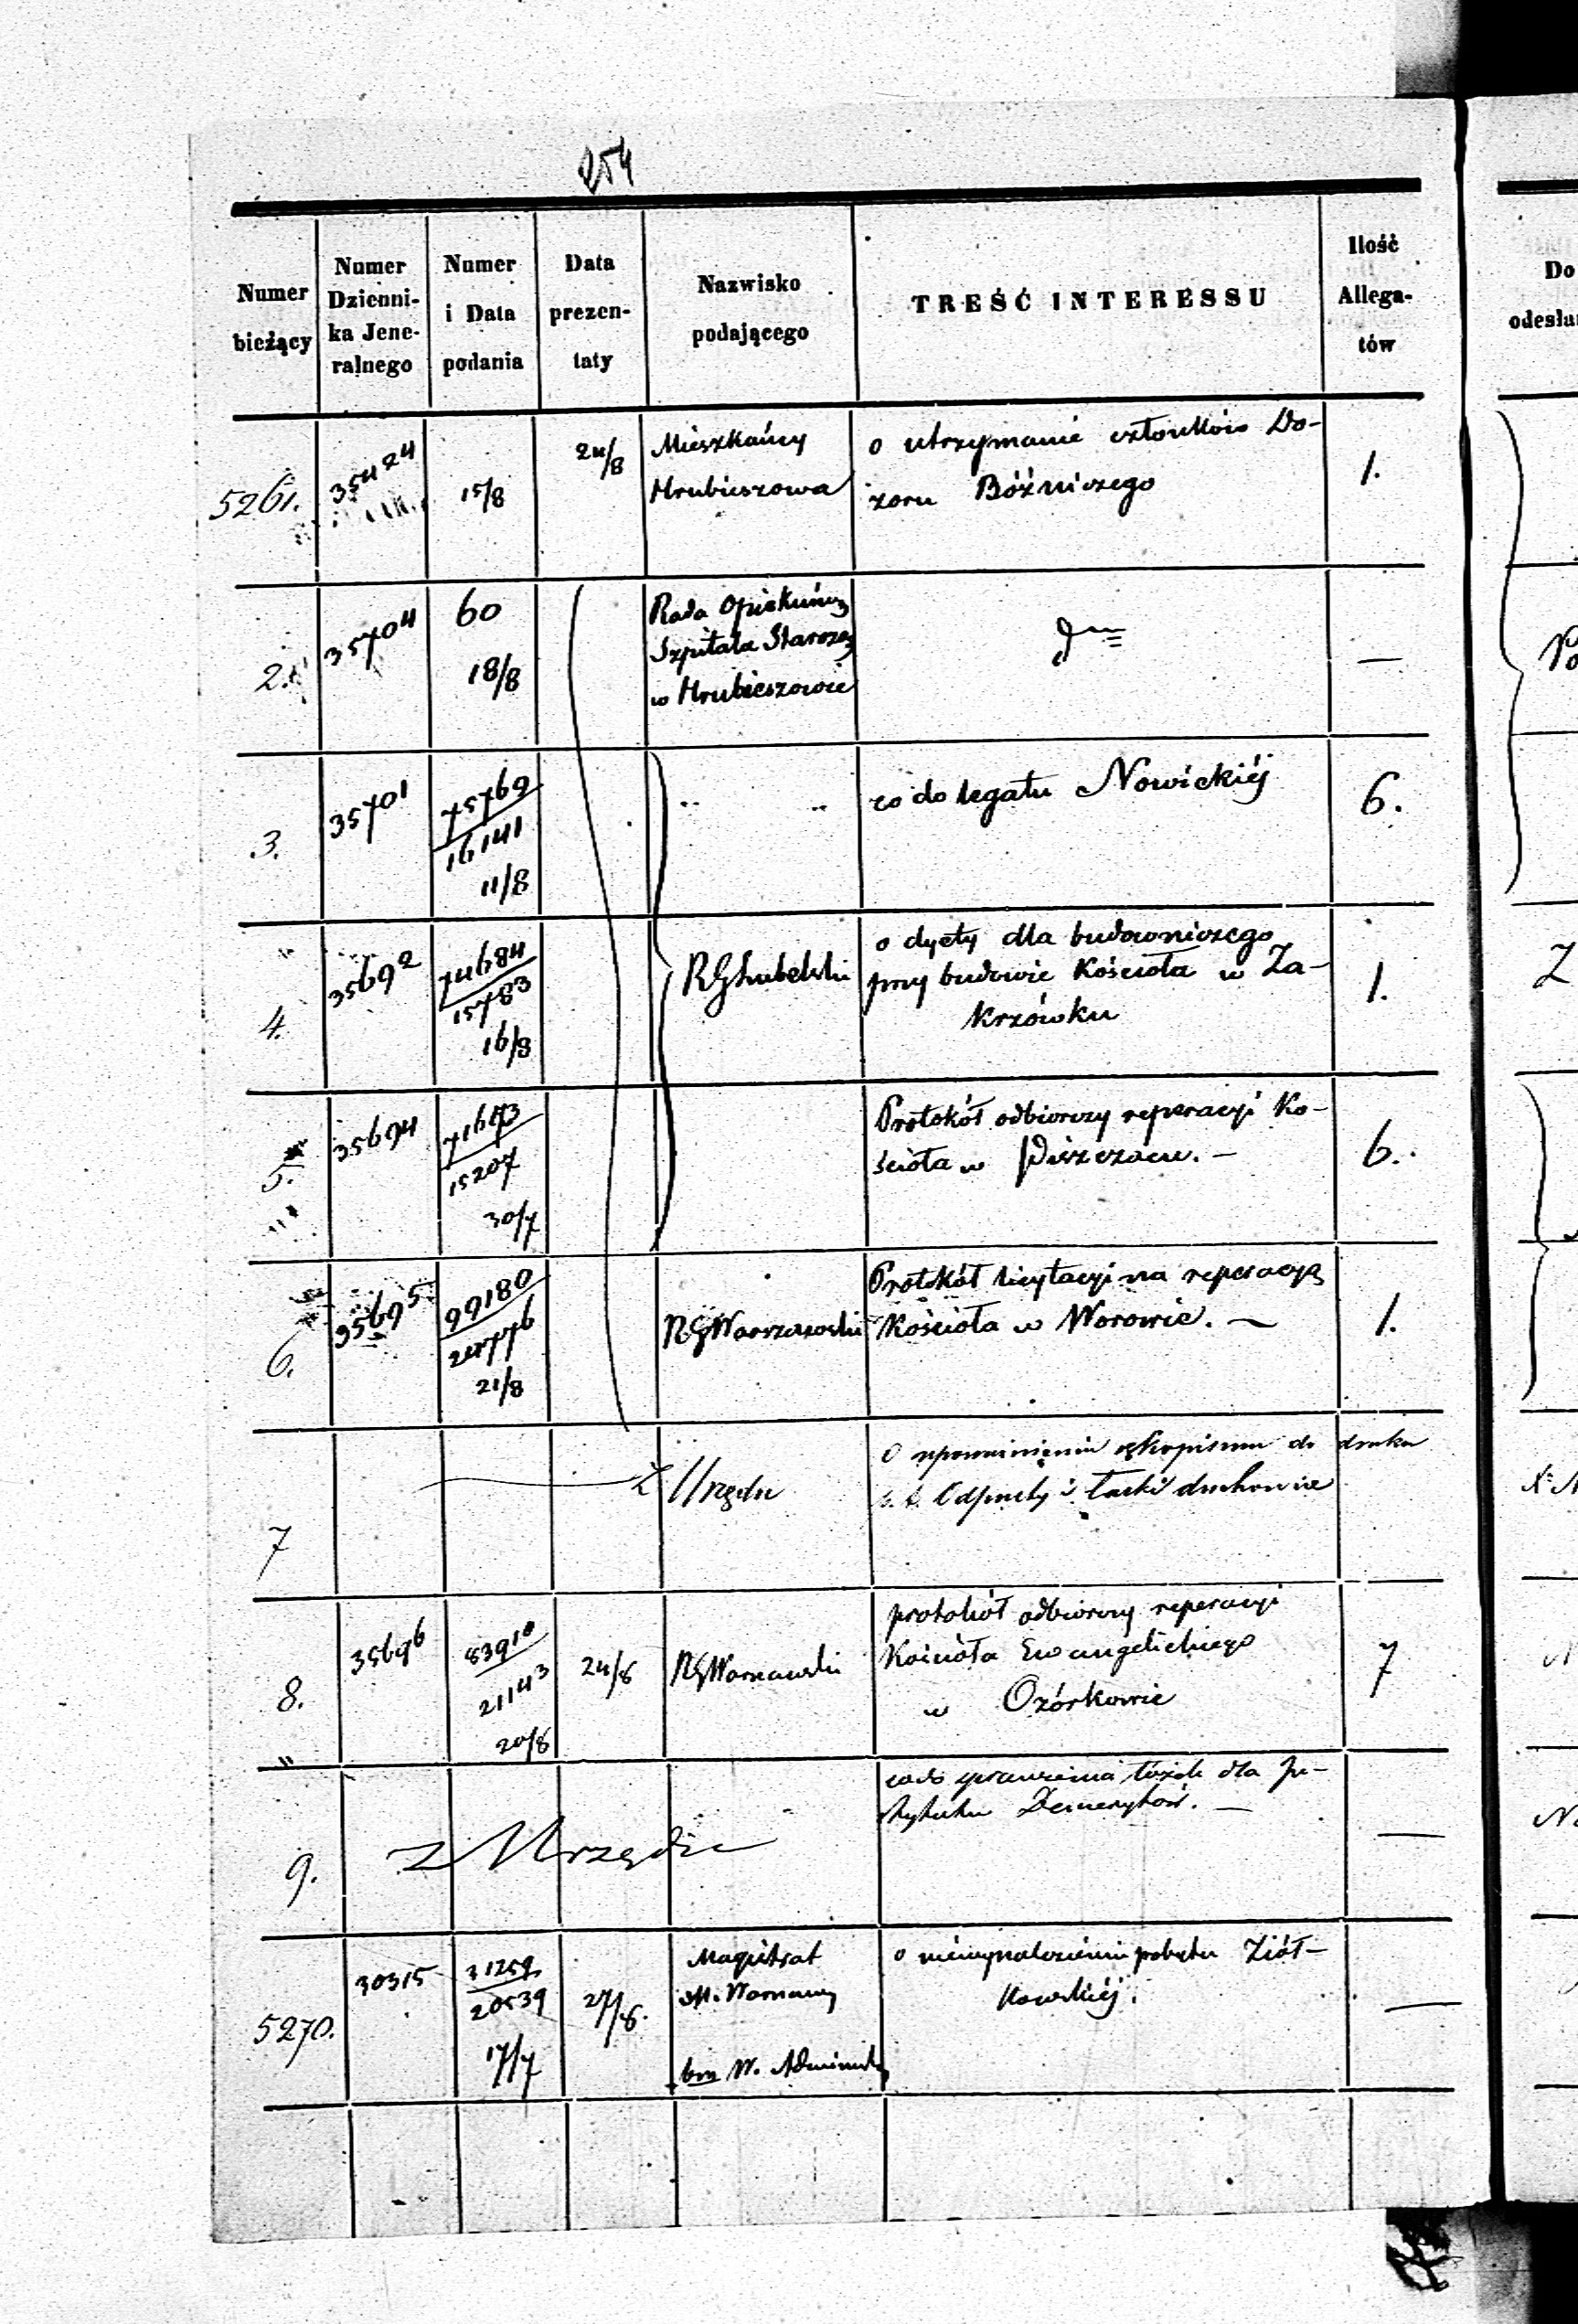 254
Numer bieżący
Numer Dzienni-ka Jene-ralnego
Numer i Data podania
Data prezen-taty
Nazwisko podającego
TREŚĆ INTERESSU
Ilość Allega-tów
Do
odesła
5261.
35424
15/8
24/8
Mieszkańcy
Hrubieszowa
o utrzymanie członków Do-
zoru Bóźniczego
1.
2.
35704
60
18/8
Rada Opiekuńcza
Szpitala Starozą
w Hrubieszowie
—
3.
35701
75769
16141
11/8
" "
co do legatu Nowickiéj
6.
4.
35692
74684
15783
16/8
RGLubelski
o dyety dla budowniczego
przy budowie Kościoła w Za-
Krzówku
1.
5.
35694
15207
30/7
Protokół odbiorczy reperacyi Ko-
ścioła w Piszczacu. —
6.
6.
35695
99180
24776
21/8
RGWarszawski
Protokół licytacyi na reperacyą
Kościoła w Worowie. —
1.
7
Z Urzędu
O rękopismu do druku
Odpusty i Łaski duchowne
8.
35696
83910
21143
20/8
24/8
RGWarszawski
protokół odbiorczy reperacyi
Kościoła Ewangelickiego
w Ozórkowie
7
9.
z Urzędu
co do sprawienia łóżek dla In-
stytutu Demerytów. —
—
5270.
30315
31259
20539
17/7
27/8.
Magistrat
M. Warszawy
W.
o niewynalezieniu pobytu Ziół-
kowskiéj.
—